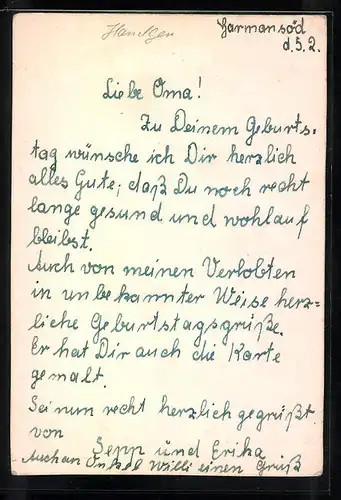 Garmansöd
d. 5. 2.
Liebe Oma!
Zu Deinem Geburts-
tag wünsche ich Dir herzlich
alles Gute, daß Du noch recht
lange gesund und wohlauf
bleibst.
Auch von meinen Verlobten
in unbekannter Weise herz=
liche Geburtstagsgrüße.
Er hat Dir auch die Karte
gemalt.
Sei nun recht herzlich gegrüßt
von
Sepp und Erika
Auch an Onkel Willi einen Gruß